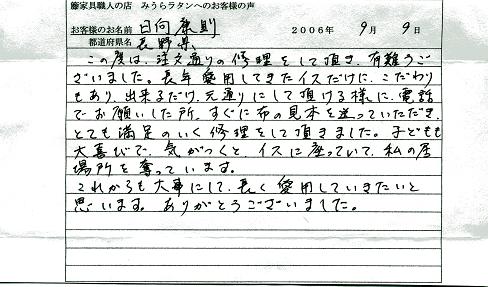 籐家具職人の店 みうらラタンへのお客様の声
お客様のお名前 日向康則 2006年 9月 9日
都道府県名 長野県
この度は、注文通りの修理をして頂き、有難うご
ざいました。長年愛用してきたイスだけに、こだわり
もあり、出来るだけ、元通りにして頂ける様に、電話
でお願いした所、すぐに布の見本を送っていただき、
とても満足のいく修理をして頂きました。子どもも
大喜びで、気がつくと、イスに座っていて、私の居
場所を奪っています。
これからも大事にして、長く愛用していきたいと
思います。ありがとうございました。